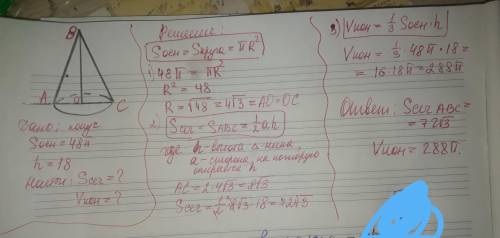 B
A
O
C
Дано: конус
Sосн = 48π
h = 18
Найти: Sсеч = ?
Vкон = ?
Решение:
Sосн = Sкруга = πR²
1) 48π = πR²
R² = 48
R = √48 = 4√3 = AO = OC
2) Sсеч = SABC = 1/2 ah
где h - высота
a - сторона, на которую
опирается h
AC = 2·4√3 = 8√3
Sсеч = 1/2·8√3·18 = 72√3
3) Vкон = 1/3 Sосн·h
Vкон = 1/3·48π·18 =
= 16·18π = 288π
Ответ: Sсеч ABC =
= 72√3
Vкон = 288π.